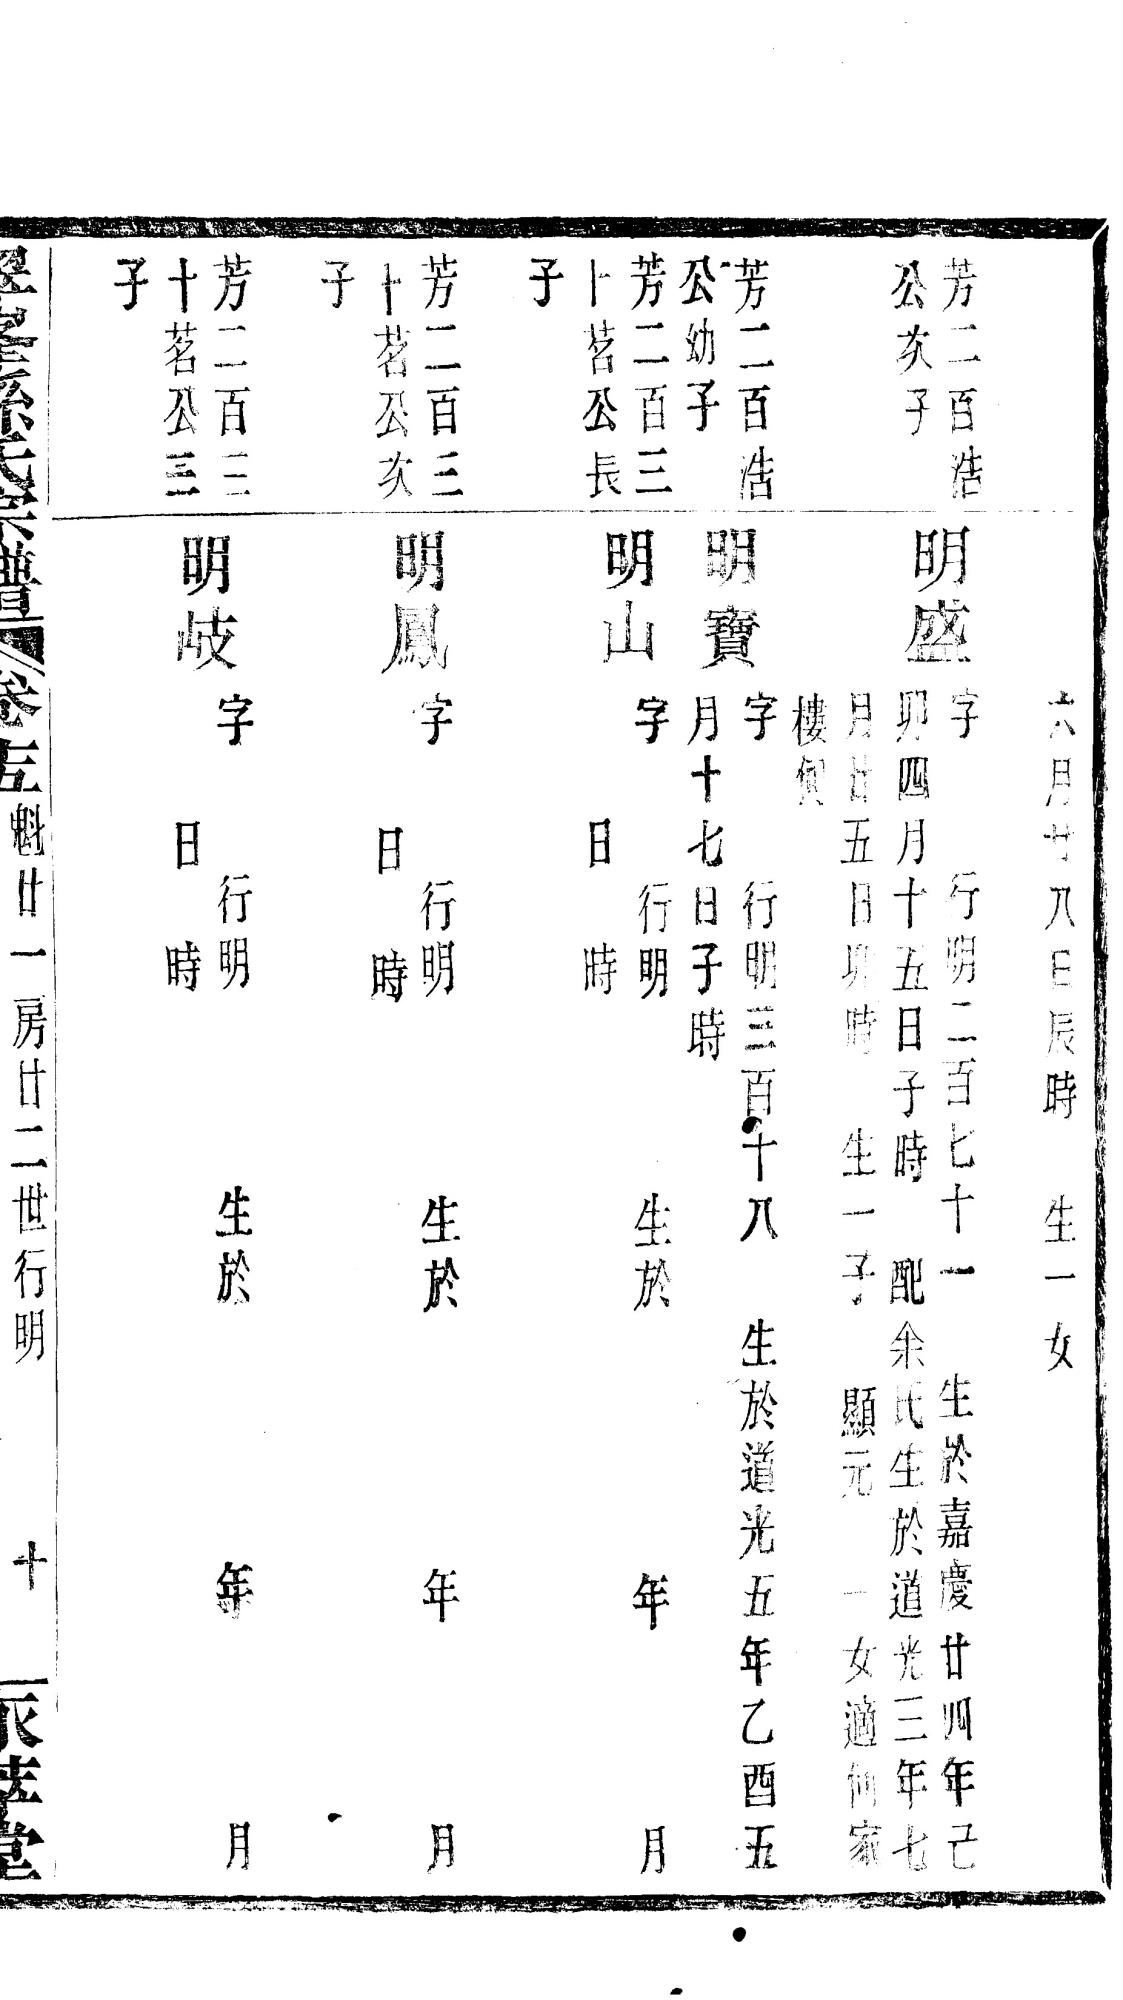 六月廿八日辰時 生一女
芳二百浩
公次子
明盛
字 行明二百七十一 生於嘉慶廿四年己
卯四月十五日子時 配余氏生於道光三年七
月廿五日卯時 生一子 顯元 一女適何家
樓何
芳二百浩
公幼子
明寶
字 行明三百十八 生於道光五年乙酉五
月十七日子時
芳二百三
十茗公長
子
明山
字 行明 生於 年 月
日 時
芳二百三
十茗公次
子
明鳳
字 行明 生於 年 月
日 時
芳二百三
十茗公三
子
明歧
字 行明 生於 年 月
日 時
氏宗譜 卷 魁廿一房廿二世行明 十 堂